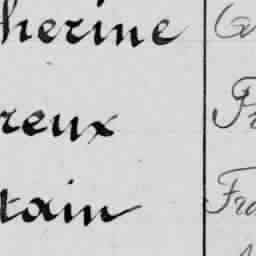 herine
reux
tain
Fra